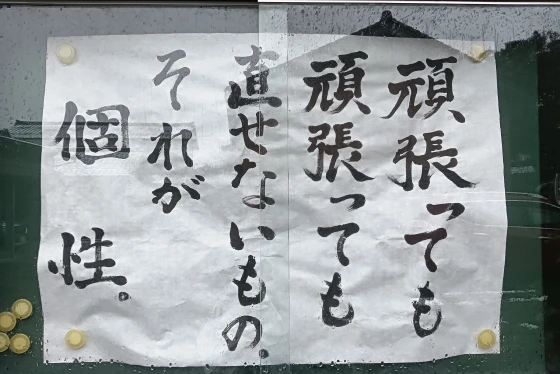 頑張っても
頑張っても
直せないもの。
それが
個性。